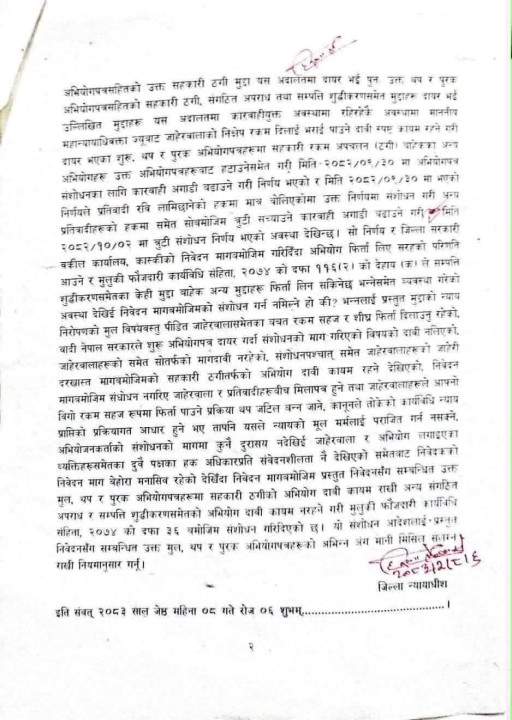 अभियोगपत्रसहितको उक्त सहकारी ठगी मुद्दा यस अदालतमा दायर भई पुन उक्त थप र पुरक
अभियोगपत्रसहितको सहकारी ठगी, संगठित अपराध तथा सम्पत्ति शुद्धीकरणसमेत मुद्दाहरू दायर भई
उल्लिखित मुद्दाहरू यस अदालतमा कारवाहीयुक्त अवस्थामा रहिरहेकै अवस्थामा माननीय
महान्यायाधिवक्ता ज्यूबाट जाहेरवालाको निक्षेप रकम दिलाई भराई पाउने दावी स्पष्ट कायम रहने गरी
दायर भएका शुरू, थप र पुरक अभियोगपत्रहरूमा सहकारी रकम अपचलन (ठगी) बाहेकका अन्य
अभियोगहरू उक्त अभियोगपत्रहरूबाट हटाउनेसमेत गरी मिति २०८२/०९/३० मा अभियोगपत्र
संशोधनका लागि कारवाही अगाडी बढाउने गरी निर्णय भएको र मिति २०८२/०९/३० मा भएको
निर्णयले प्रतिवादी रवि लामिछानेको हकमा मात्र बोलिएकोमा उक्त निर्णयमा संशोधन गरी अन्य
प्रतिवादीहरूको हकमा समेत सोबमोजिम त्रुटी सच्याउने कारवाही अगाडी बढाउने गरी मिति
२०८२/१०/०२ मा त्रुटी संशोधन निर्णय भएको अवस्था देखिन्छ। सो निर्णय र जिल्ला सरकारी
वकील कार्यालय, कास्कीको निवेदन मागबमोजिम गरिदिँदा अभियोग फिर्ता लिए सरहको परिणति
आउने र मुलुकी फौजदारी कार्यविधि संहिता, २०७४ को दफा ११६(२) को देहाय (क) ले सम्पत्ति
शुद्धीकरणसमेतका केही मुद्दा बाहेक अन्य मुद्दाहरू फिर्ता लिन सकिनेछ भन्नेसमेत व्यवस्था गरेको
अवस्था देखिई निवेदन मागबमोजिमको संशोधन गर्न नमिल्ने हो की? भन्नलाई प्रस्तुत मुद्दाको न्याय
निरोपणको मुल विषयवस्तु पीडित जाहेरवालासमेतका बचत रकम सहज र शीघ्र फिर्ता दिलाउनु रहेको,
वादी नेपाल सरकारले शुरू अभियोगपत्र दायर गर्दा संशोधनको माग गरिएको विषयको दावी नलिएको,
जाहेरवालाहरूको समेत सोतर्फको मागदावी नरहेको, संशोधनपश्चात् समेत जाहेरवालाहरूको जाहेरी
दरखास्त मागबमोजिमको सहकारी ठगीतर्फको अभियोग दावी कायम रहने देखिएको, निवेदन
मागबमोजिम संधोधन नगरिए जाहेरवाला र प्रतिवादीहरूबीच मिलापत्र हुने तथा जाहेरवालाहरूले आफ्नो
बिगो रकम सहज रूपमा फिर्ता पाउने प्रक्रिया थप जटिल बन्न जाने, कानूनले तोकेको कार्यविधि न्याय
प्राप्तिको प्रक्रियागत आधार हुने भए तापनि यसले न्यायको मूल मर्मलाई पराजित गर्न नसक्ने,
अभियोजनकर्ताको संशोधनको मागमा कुनै दुरासय नदेखिई जाहेरवाला र अभियोग लगाइएका
व्यक्तिहरूसमेतका दुवै पक्षका हक अधिकारप्रति संबेदनशीलता नै देखिएको समेतबाट निवेदकको
निवेदन माग बेहोरा मनासिव रहेको देखिँदा निवेदन मागबमोजिम प्रस्तुत निवेदनसँग सम्बन्धित उक्त
मुल, थप र पुरक अभियोगपत्रहरूमा सहकारी ठगीको अभियोग दावी कायम राखी अन्य संगठित
अपराध र सम्पत्ति शुद्धीकरणसमेतको अभियोग दावी कायम नरहने गरी मुलुकी फौजदारी कार्यविधि
संहिता, २०७४ को दफा ३६ बमोजिम संशोधन गरिदिएको छ। यो संशोधन आदेशलाई प्रस्तुत
निवेदनसँग सम्बन्धित उक्त मुल, थप र पुरक अभियोगपत्रहरूको अभिन्न अंग मानी मिसिल सलग्न
राखी नियमानुसार गर्नू।
२०८३/२/८/६
जिल्ला न्यायाधीश
इति संवत् २०८३ साल जेष्ठ महिना ०८ गते रोज ०६ शुभम्.......................................।
२